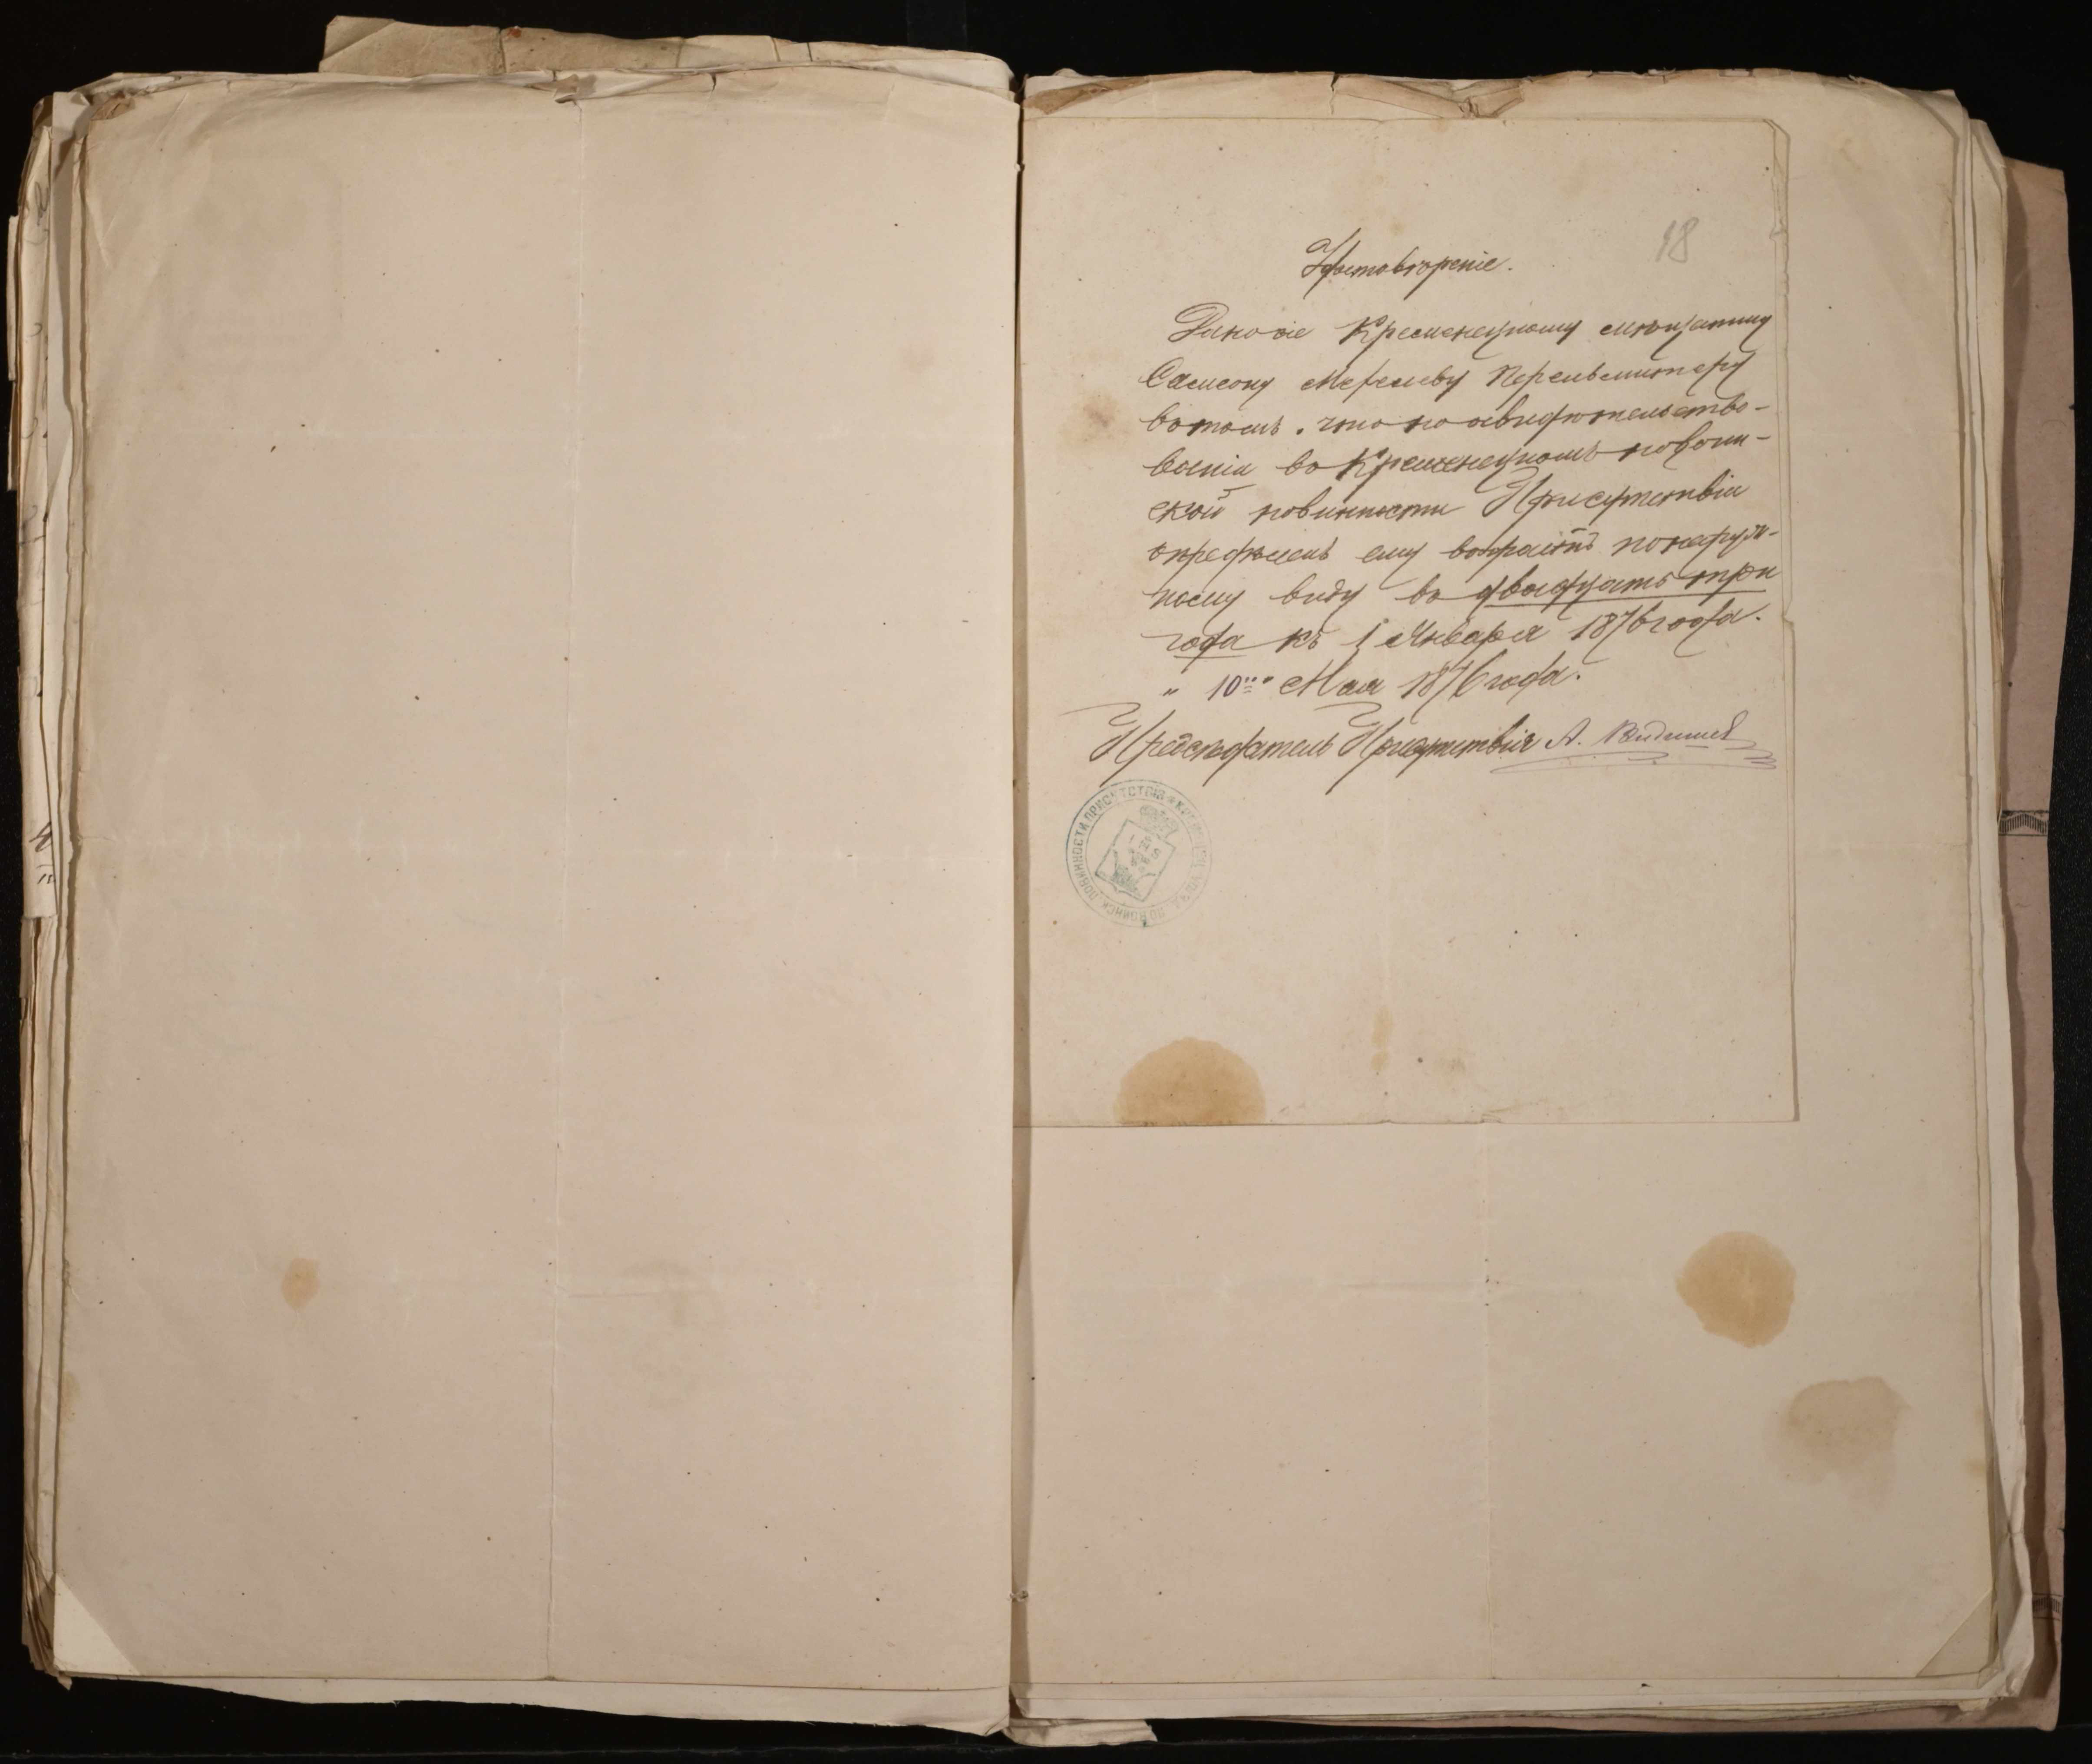 18
Удостовѣреніе.
Дано сіе Кременецкому мѣщанину
Самсону Перельмитеру
въ томъ, что по освидѣтельство-
ваніи въ Кременецкомъ по воин-
ской повинности Присутствіи
опредѣленъ ему возрастъ по наруж-
ному виду въ двадцать три
года къ 1 Января 1876 года.
" 10 " Мая 1876 года.
Предсѣдатель Присутствія А.
ПО ВОИНСК. ПОВИННОСТИ ПРИСУТСТВІЯ